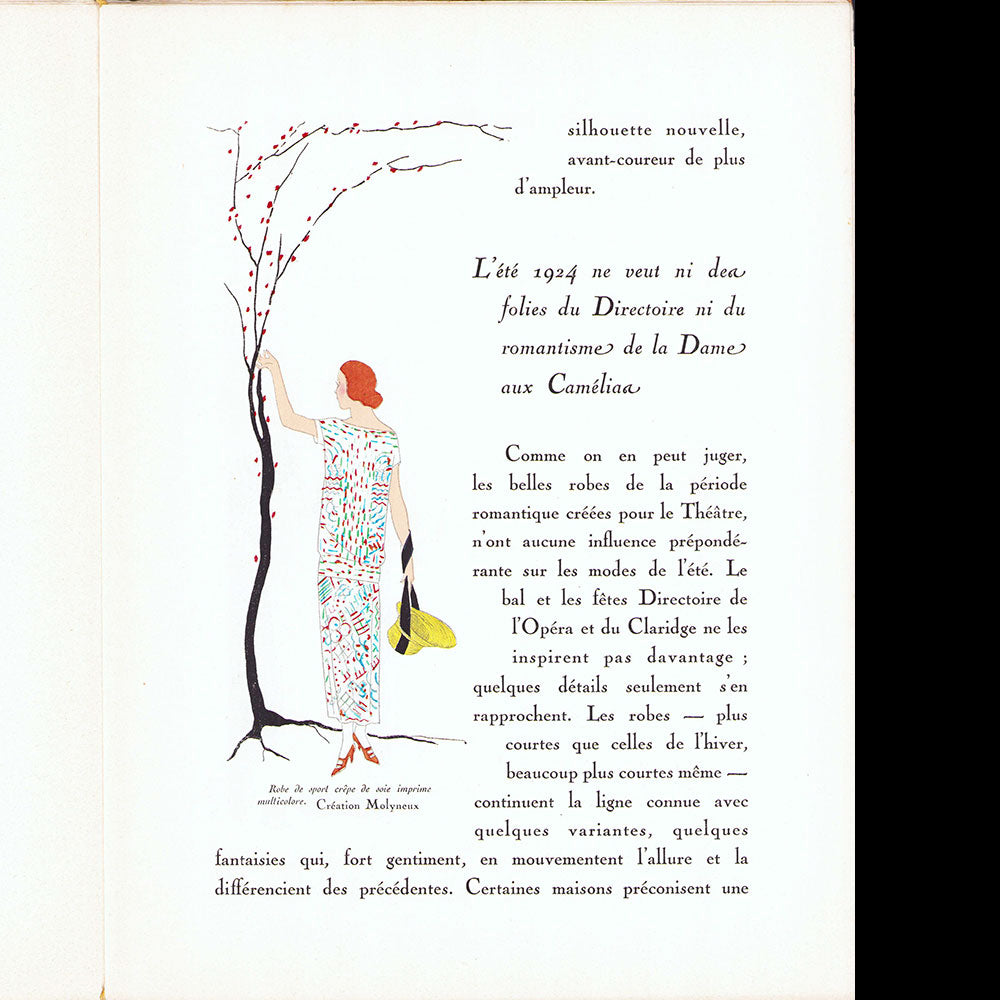 silhouette nouvelle,
avant-coureur de plus
d'ampleur.
L'été 1924 ne veut ni des
folies du Directoire ni du
romantisme de la Dame
aux Camélias
Comme on en peut juger,
les belles robes de la période
romantique créées pour le Théâtre,
n'ont aucune influence prépondé-
rante sur les modes de l'été. Le
bal et les fêtes Directoire de
l'Opéra et du Claridge ne les
inspirent pas davantage ;
quelques détails seulement s'en
rapprochent. Les robes — plus
courtes que celles de l'hiver,
beaucoup plus courtes même —
continuent la ligne connue avec
quelques variantes, quelques
fantaisies qui, fort gentiment, en mouvementent l'allure et la
différencient des précédentes. Certaines maisons préconisent une
Robe de sport crêpe de soie imprime
multicolore. Création Molyneux